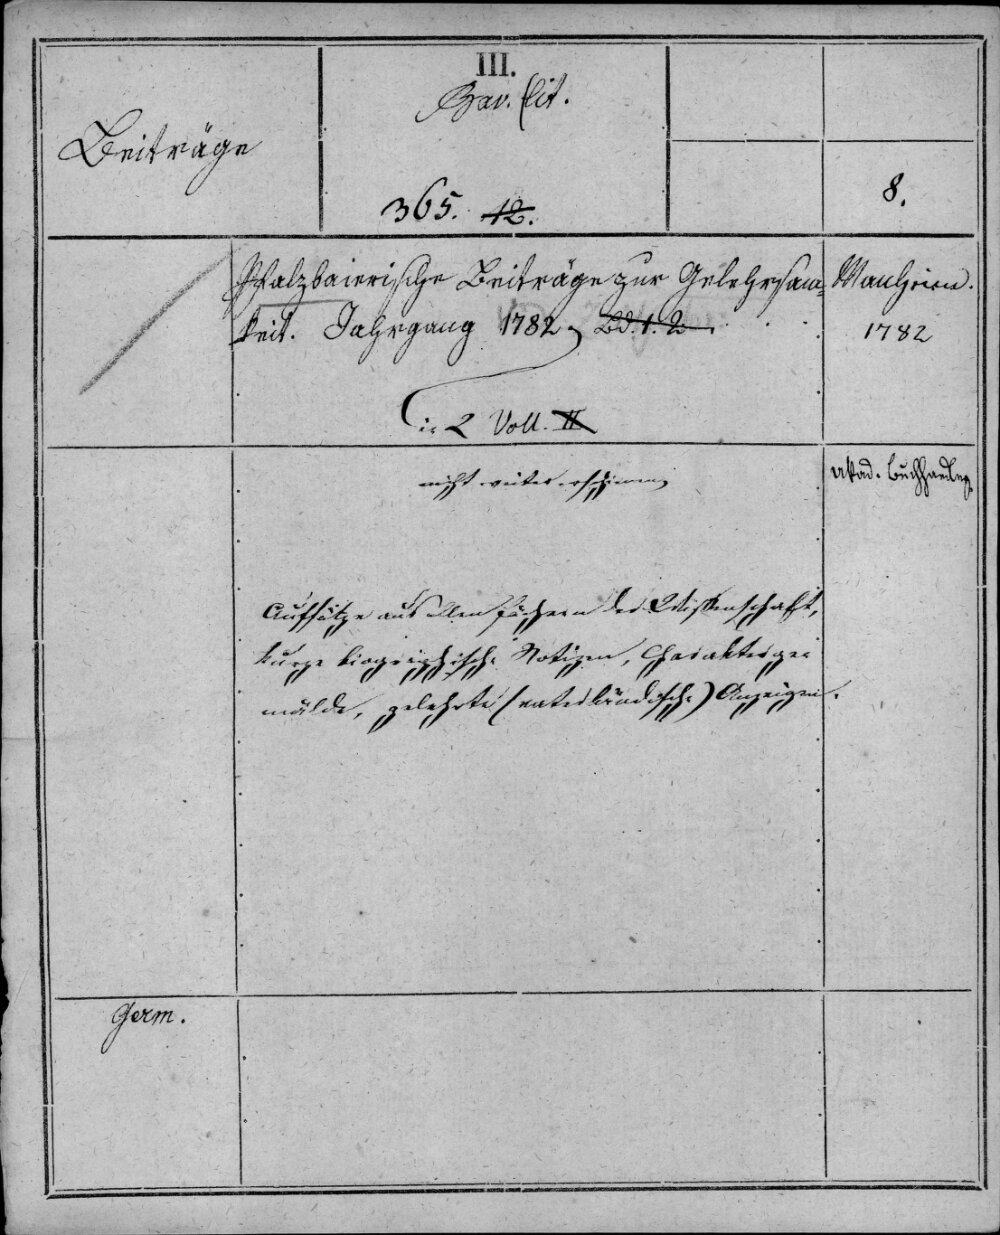 III.
Bav. lit.
Beiträge
365. 12.
8.
Pfalzbaierische Beiträge zur Gelehrsam-
keit. Jahrgang 1782, Bd. 1. 2
in 2 Voll. II
Manheim.
1782
nicht weiter erschienen
akad. Buchhandlng.
Aufsätze aus allen Fächern der Wissenschaft,
kurze biographische Notizen, Charakterge-
mälde, gelehrte (vaterländische) Anzeigen.
Germ.